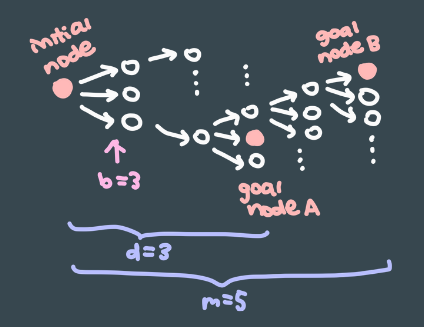 initial
node
goal
node B
b=3
goal
node A
d=3
m=5